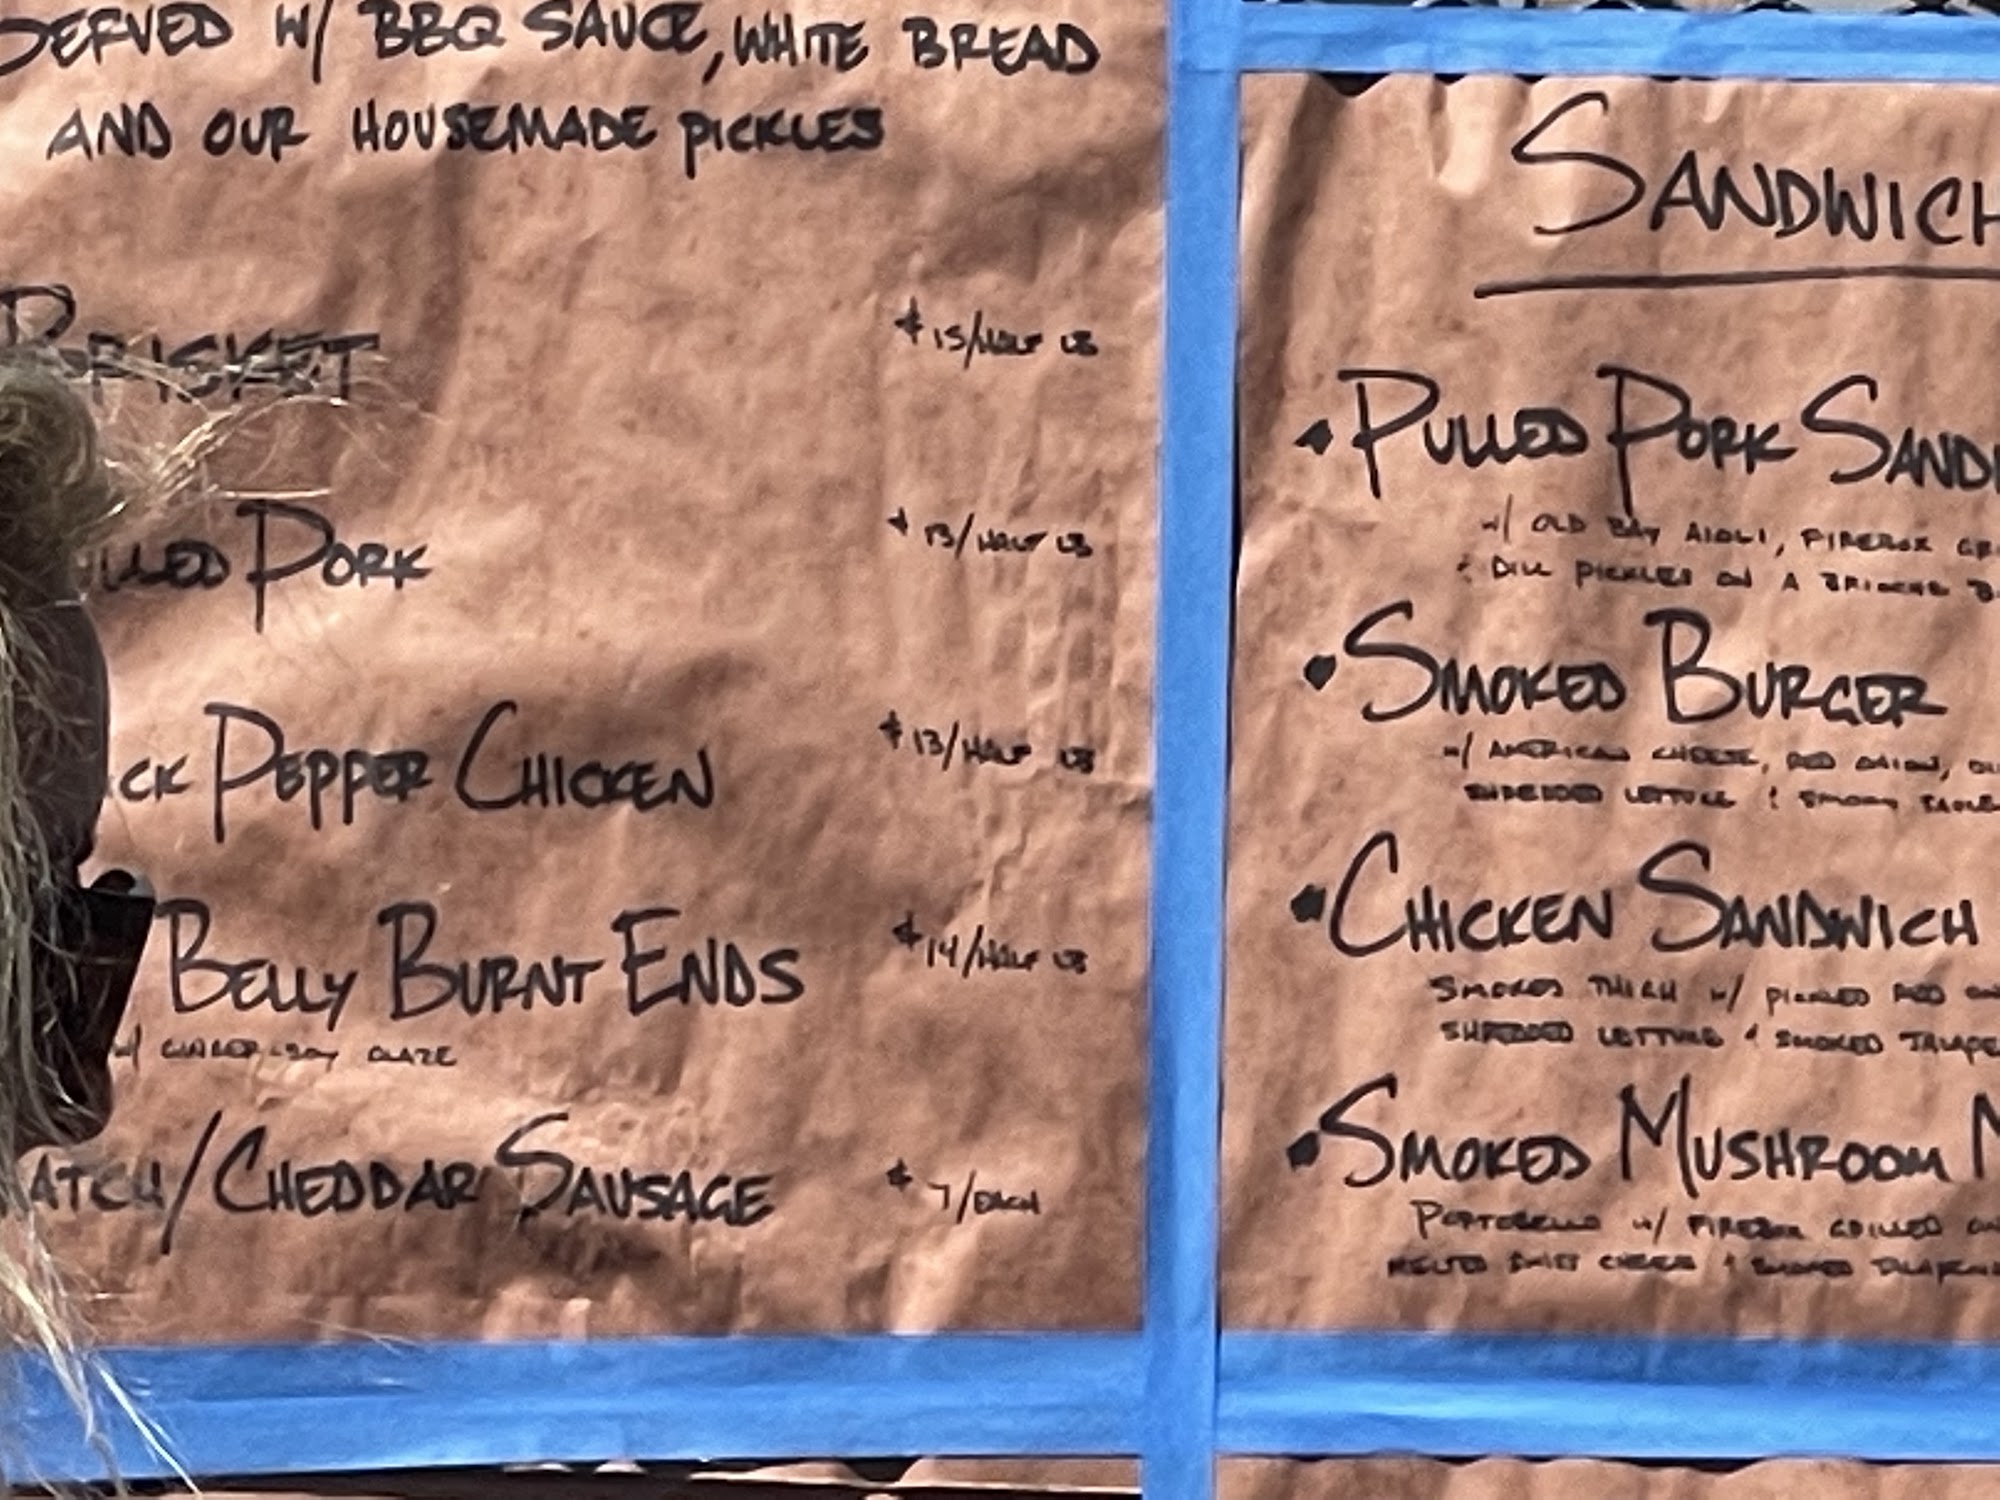 SERVED W/ BBQ SAUCE, WHITE BREAD
AND OUR HOUSEMADE PICKLES
BRISKET $15/HALF LB
PORK $13/HALF LB
PEPPER CHICKEN $13/HALF LB
BELLY BURNT ENDS $14/HALF LB
W/ GINGER-SOY GLAZE
/CHEDDAR SAUSAGE $7/EACH
SANDWICH
• PULLED PORK SAND
W/ OLD BAY AIOLI, FIREBOX
& DILL PICKLES ON A BRIOCHE
• SMOKED BURGER
W/ AMERICAN CHEESE, RED ONION,
SHREDDED LETTUCE & SMOKY
• CHICKEN SANDWICH
SMOKED THIGH W/ PICKLED RED
SHREDDED LETTUCE & SMOKED JALAPE
• SMOKED MUSHROOM
PORTOBELLO W/ FIREBOX GRILLED
MELTED SWISS CHEESE & SMOKED JALAPENO